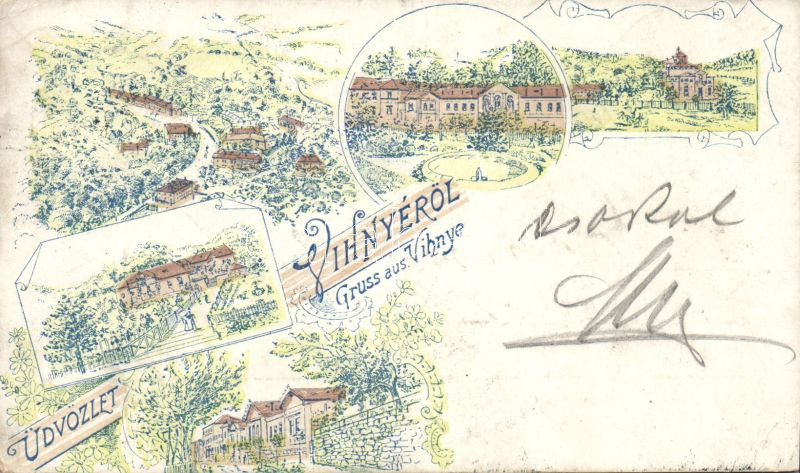 VIHNYÉRŐL
Gruss aus Vihnye
ÜDVÖZLET
csokol